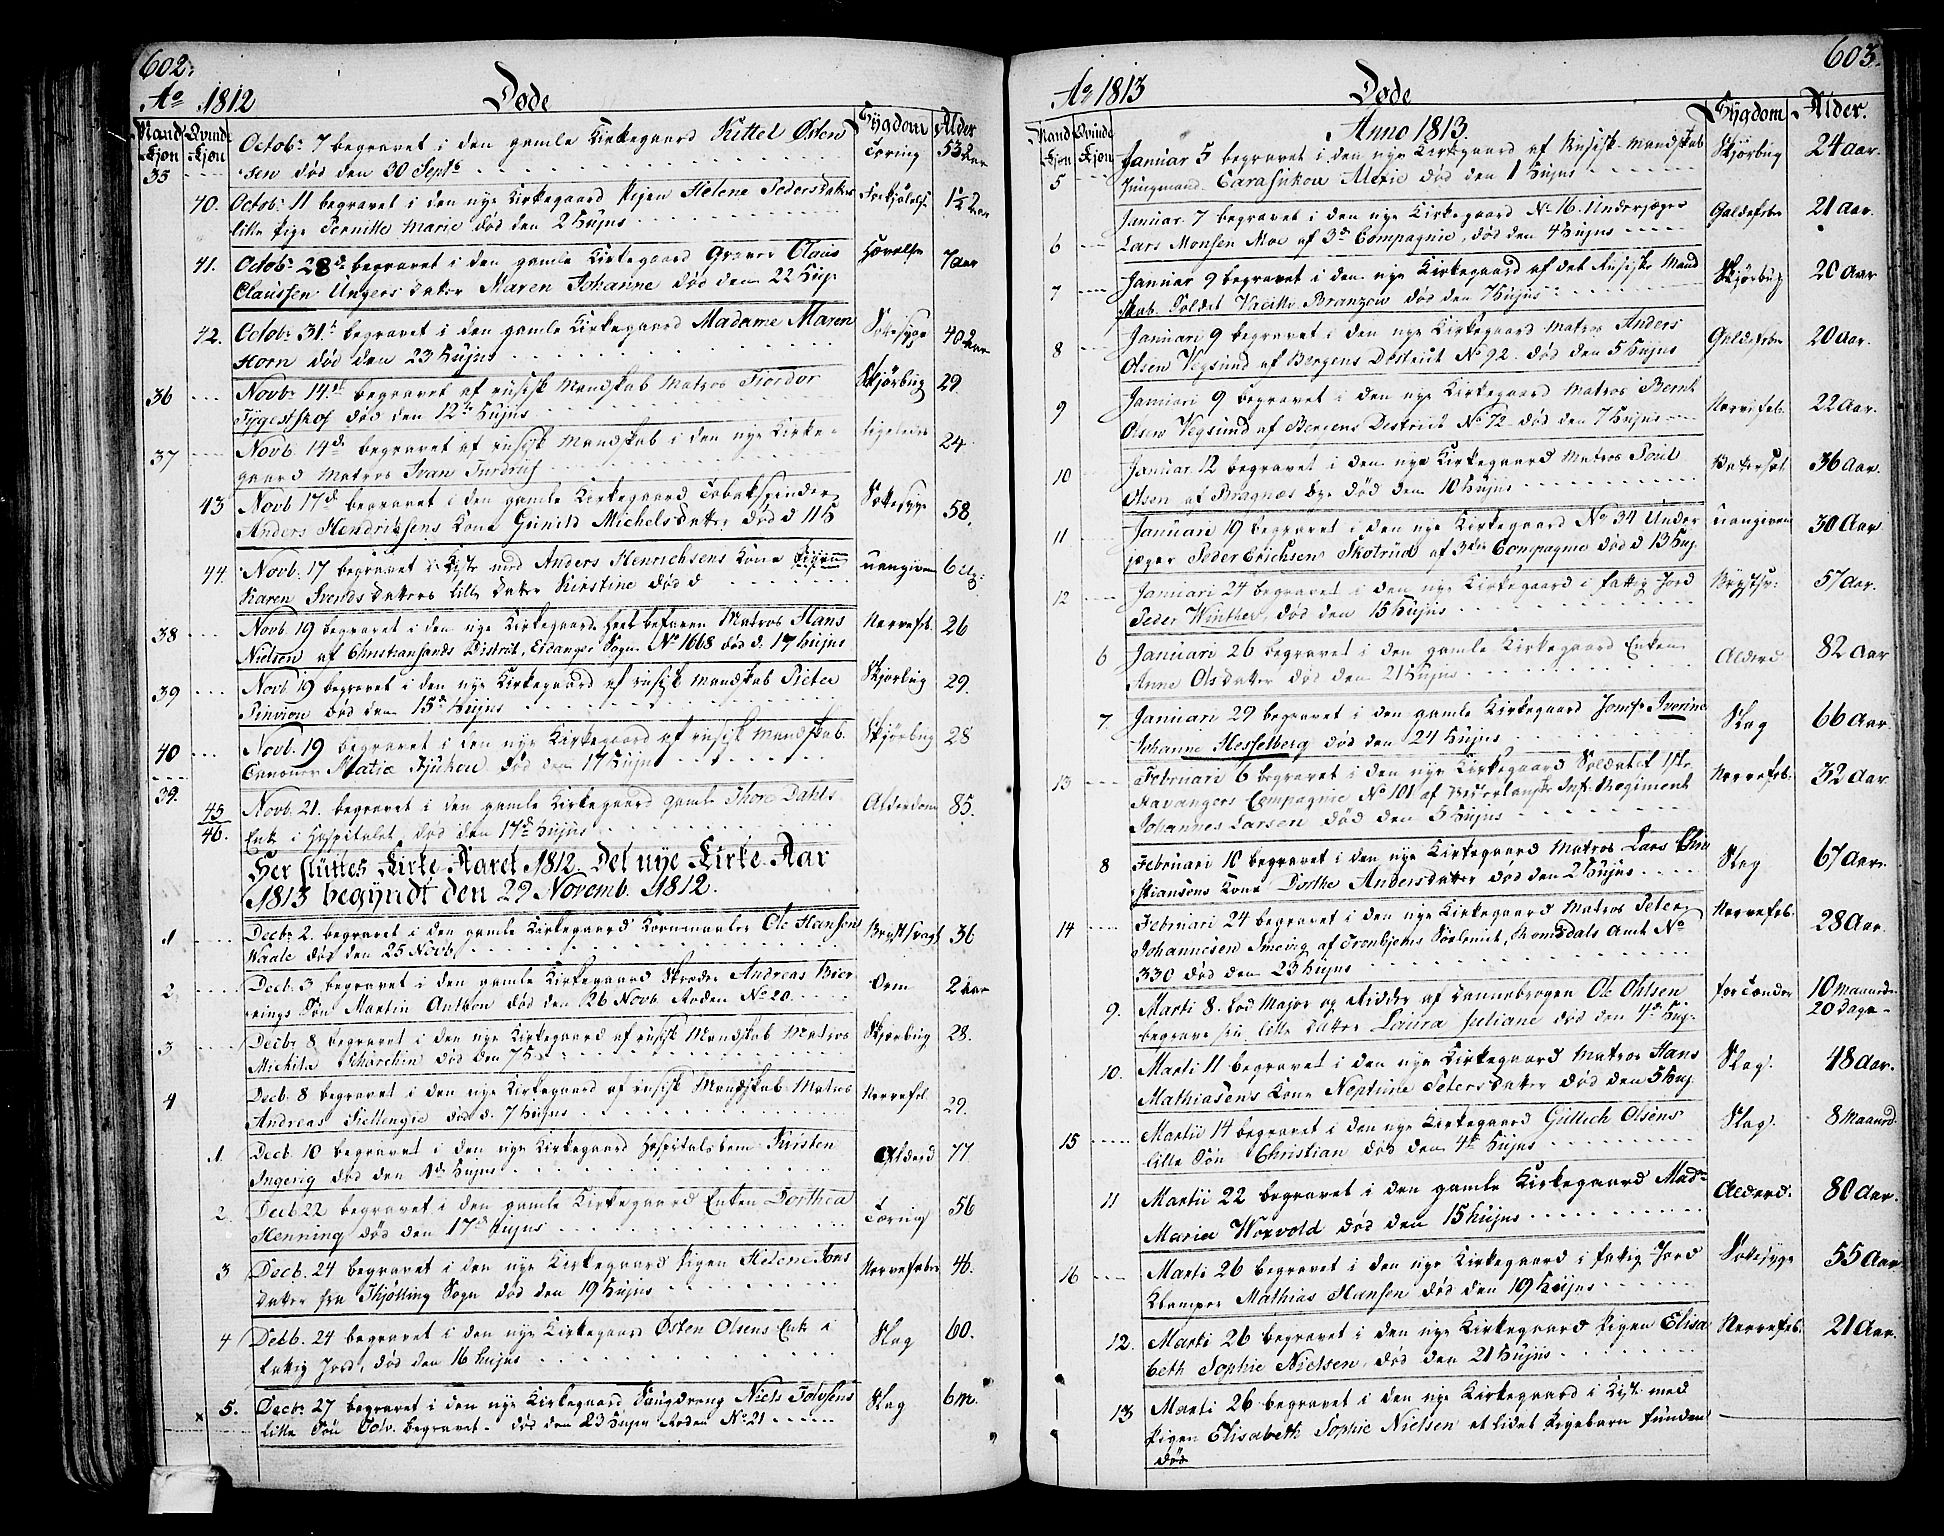 602.
Ao 1812 Døde
Mands Kjøn Qvinde Kjøn Sygdom Alder
Octobr 7 begravet i den gamle Kirkegaard Kittel Østen Tæring 53 Aar
35 sen død den 30 Septbr
40. Octobr 11 begravet i den nye Kirkegaard Pigen Helene Pedersdatters 1½ Aar
lille Pige Pernille Marie død den 2 Hujus
41. Octobr 28d begravet i den gamle Kirkegaard Graver Claus Hævelse 7 aar
Claussen Ungers datter Maren Johanne død den 22 Huj.
42. Octobr 31t begravet i den gamle Kirkegaard Madame Maren Sotesyge 40 Aar
Horn død den 23 Hujus
36 Novbr 14d begravet af rusisk Mandskab Matros Fiordor Skjørbug 29.
Tygestskof død den 12te Hujus
37 Novb 14d begravet af rusisk Mandskab i den nye Kirke- ligeledes 24.
gaard Matros Ivan Turdruf
43 Novb 17d begravet i den gamle Kirkegaard Tobakspinder Sotesyge 58.
Anders Hendriksens Kone Gunild Michelsdatter død d 11 H
44. Novb. 17 begravet i Kiste med Anders Henrichsens Kone Pigen uangiven 6 ug:
Karen Svendsdatters lille datter Kirstine død d
38 Novb 19 begravet i den nye Kirkegaard heel befaren Matros Hans Nervefeb. 26
Nielsen af Christiansands Distrikt, Eidanger Sogn No 1668 død d. 17 hujus
39 Novb 19 begravet i den nye Kirkegaard af rusisk Mandskab Pieter Skjørbug 29.
Pinvion død den 15d Hujus
40 Novb. 19 begravet i den nye Kirkegaard af rusisk Mandskab Skjørbug 28
Canoner Matie Bjukou død den 17 Hujus
39. 45 Novb. 21. begravet i den gamle Kirkegaard gamle Thore Dahls Alderdom 85.
46. Enke i Hospitalet, død den 17d Hujus
Her sluttes Kirke Aaret 1812 Det nye Kirke Aar
1813 begyndt den 29 Novemb. 1812.
1 Decbr 2 begravet i den gamle Kirkegaard Kornmaaler Ole Hansen Brystsvagh 36
Waale død den 25 Novb
2 Decb. 3 begravet i den gamle Kirkegaard Skræder Andreas Bier Orm 2 Aar
rings Søn Martin Anthon død den 26 Novb. Roden No 20
3 Decbr 8 begravet i den nye Kirkegaard af rusisk Mandskab Matros Skjørbug 28.
Michita Schorchin død den 7 H
4 Decb. 8 begravet i den nye Kirkegaard af rusisk Mandskab Matros Nervefeb. 29.
Andreas død d. 7 Hujus
1. Decb 10 begravet i den nye Kirkegaard Hospitalslem Kirsten Alderd 77
Ingerig død den Hujus
2. Decb 22 begravet i den gamle Kirkegaard Enken Dorthea Tæring 56
Henning død den 17d Hujus
3 Decb. 24 begravet i den nye Kirkegaard Pigen Helene Jons Nervefeber 46.
datter fra Thjølling Sogn død den 19 Hujus
4 Decb. 24 begravet i den nye Kirkegaard Østen Olsens Enke i Slag 60.
Fattig Jord, død den 16 hujus
x 5. Decbr 27 begravet i den nye Kirkegaard Saugdreng Niels Tolvsens Slag 6 m.
lille Søn Tolv. begravet. død den 23 Hujus Roden No 21
603.
Ao 1813 Døde
Mand Kjøn Qvinde Kjøn Sygdom Alder.
Anno 1813.
Januar 5 begravet i den nye Kirkegaard af Rusisk Mandskab Skjørbug 24 aar.
5 Jungmand Carasukou Alexie død den 1 Hujus
Januar 7 begravet i den nye Kirkegaard No 16. Underjæger Galdefeber 21 Aar.
6 Lars Monsen Moe af 3de Compagnie, død den 4 Hujus
7 Januar 9 begravet i den nye Kirkegaard af det Rusiske Mand Skjørbug 20 Aar
skab Soldat Branzow død den 7 Hujus
8 Januari 9 begravet i den nye Kirkegaard Matros Anders Galdefeber 20 Aar.
Olsen Vegsund af Bergens Distrikt No 92. død den 5 Hujus
9 Januari 9 begravet i den nye Kirkegaard Matros Bernt Nervefeb. 22 Aar.
Olsen Vegsund af Bergens District No 72 død den 7 Hujus
10 Januar 12 begravet i den nye Kirkegaard Matros Poul Vatersot 36 Aar.
Olsen af Bragnæs bye død den 10 Hujus
11 Januari 19 begravet i den nye Kirkegaard No 34 Under uangiven 30 Aar
jæger Peder Erichsen Skotrud af 3die Compagnie død d 13 Huj
12 Januari 24 begravet i den nye Kirkegaard i fattig Jord Brystsv: 57 Aar.
Peder Winther, død den 15 Hujus
6 Januari 26 begravet i den gamle Kirkegaard Enken Alderd 82 Aar
Anne Olsdatter død den 21 Hujus
7 Januari 29 begravet i den gamle Kirkegaard Jomfr Iverine Slag 66 Aar
Johanne Hesselberg død den 24 Hujus
13 Februari 6 begravet i den nye Kirkegaard Soldat af 1te Nervefeb. 32 Aar
Stavangers Compagnie No 101 af Vesterlenske Inf. Regiment
Johannes Larsen død den 5 Hujus
8 Februari 10 begravet i den nye Kirkegaard Matros Lars Chri Slag 67 Aar.
stiansens Kone Dorthe Andersdatter død den 2 Hujus
14 Februari 24 begravet i den nye Kirkegaard Matros Peter Nervefeb. 28 Aar.
Johannesen Smevig af Tronhjems Søelemit, Romsdals Amt No
330 død den 23 Hujus
9. Marti 8. lod Major og Ridder af Dannebrogen Ole Ohlsen for Tænder 10 Maaned
begrave sin lille datter Laura Juliane død den 4d Huj. 20 dage
10. Marti 11 begravet i den nye Kirkegaard Matros Hans Slag. 48 Aar.
Mathiasens Kone Neptune Petersdatter død den 5 Huj
15 Martii 14 begravet i den nye Kirkegaard Gullich Olsens Slag. 8 Maaned
lille Søn Christian død den 4de Hujus
11 Martii 22 begravet i den gamle Kirkegaard Made Alderd. 80 Aar.
Maria Worvold død den 15 hujus
16 Marti 26 begravet i den nye Kirkegaard i fattig Jord Sotesyge 55 Aar
Klamper Mathias Hansen død den 19 Hujus
12. Marti 26 begravet i den nye Kirkegaard Pigen Elisa Nervefeb. 21 Aar.
beth Sophie Nielsen, død den 21 Hujus
13 Marti 26 begravet i den nye Kirkegaard i Kiste med
Pigen Elisabeth Sophie Nielsen et lidet Pigebarn funden
død